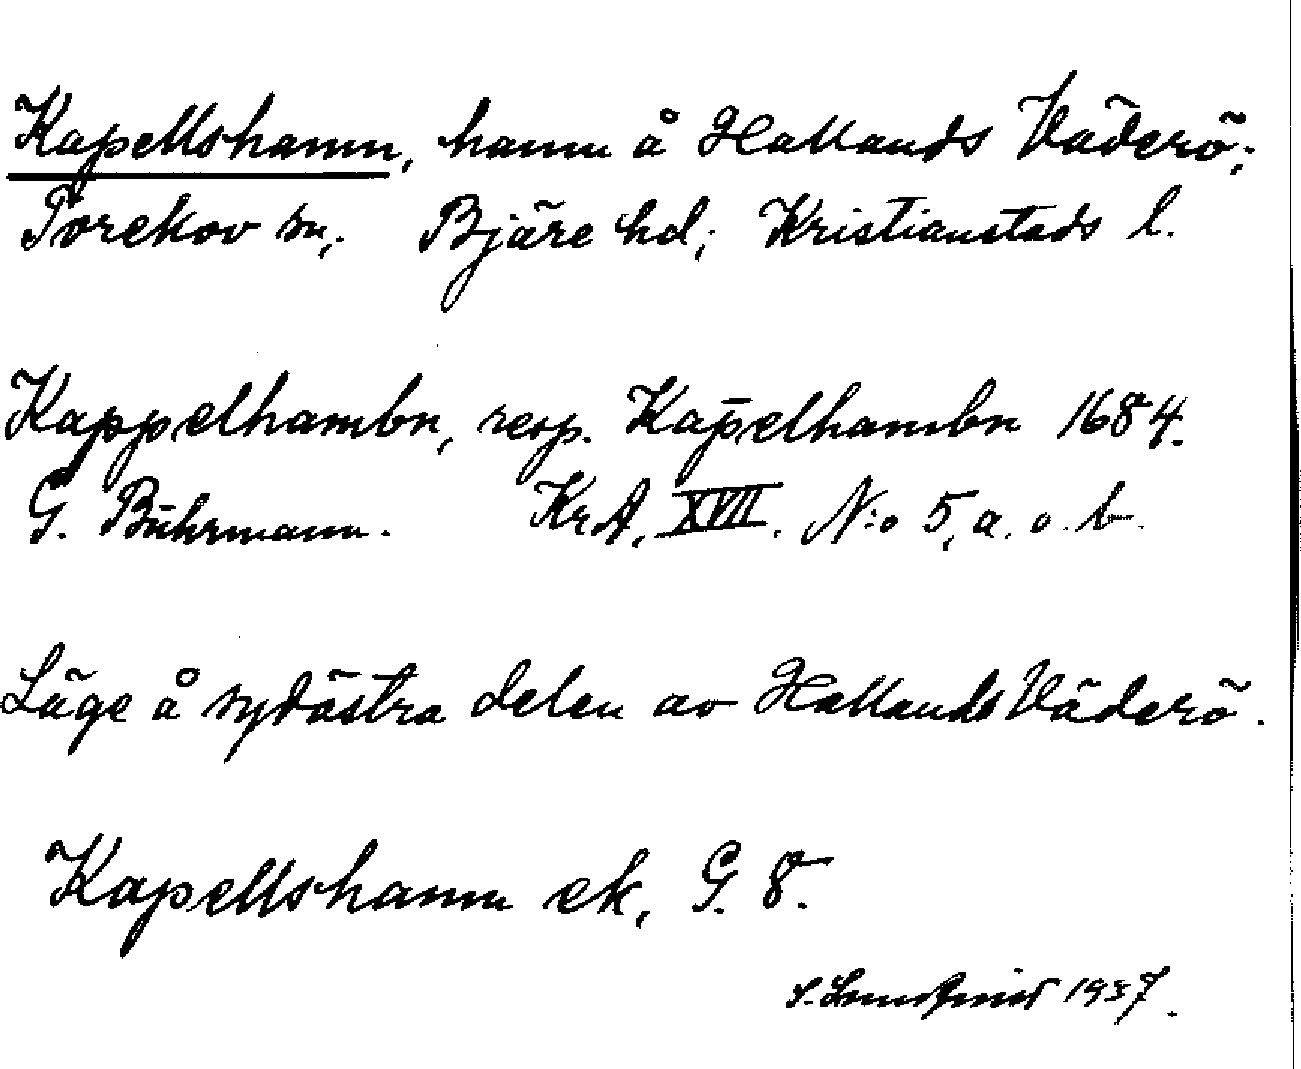 Kapellshamn, hamn å Hallands Väderö;
Torekov sn; Bjäre hd; Kristianstads l.
Kappelhambn, resp. Kapelhambn 1684.
G. Buhrmann. KrA, XVII. N:o 5, a. o. b.
Läge å sydöstra delen av Hallands Väderö.
Kapellshamn ek, G. 8.
S. Lundqvist 1937.